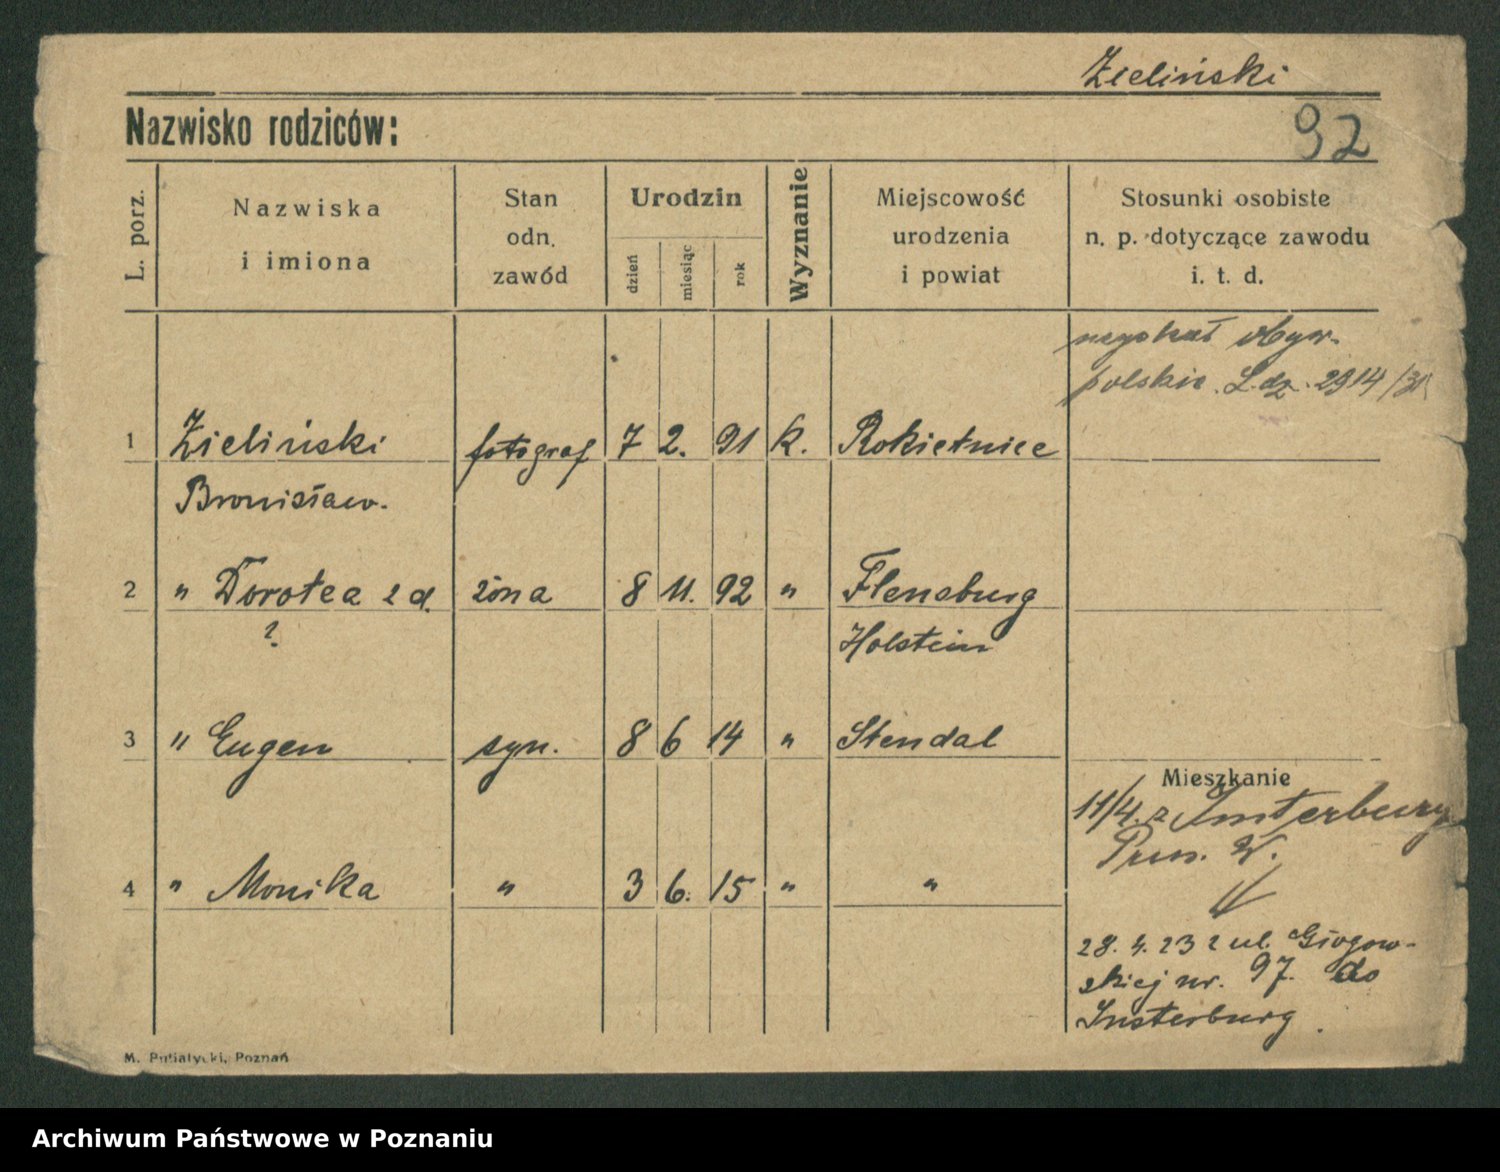 Zieliński
Nazwisko rodziców:
92
L. porz.
Nazwiska
i imiona
Stan
odn.
zawód
Urodzin
dzień
miesiąc
rok
Wyznanie
Miejscowość
urodzenia
i powiat
Stosunki osobiste
n. p. dotyczące zawodu
i. t. d.
uzyskał obyw.
polskie. L. dz. 2914/31
1 Zieliński fotograf 7 2. 91 k. Rokietnice
Bronisław.
2 " Dorotea z d. żona 8 11. 92 " Flensburg
? Holstein
3 " Eugen syn. 8 6 14 " Stendal
4 " Monika " 3 6. 15 " "
Mieszkanie
11/4. z Insterburg
Prus. W.
28. 4. 23 z ul. Głogow-
skiej nr. 97. do
Insterburg.
M. Putiatycki, Poznań
Archiwum Państwowe w Poznaniu